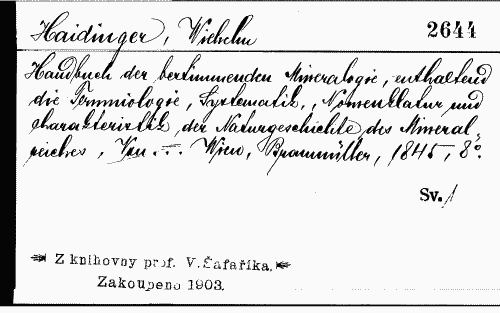 Haidinger, Wilhelm
2644
Handbuch der bestimmenden Mineralogie, enthaltend
die Terminologie, Systematik, Nomenklatur und
Charakteristik der Naturgeschichte des Mineral-
reiches, Von ... Wien, Braumüller, 1845, 8°.
Sv. 1
Z knihovny prof. V. Šafaříka.
Zakoupeno 1903.